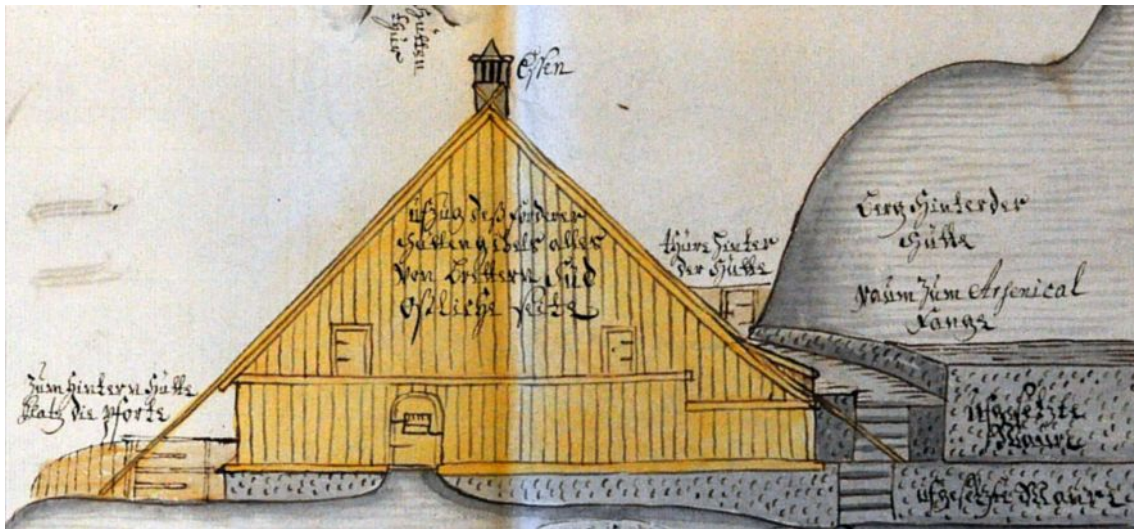 Hütten
thür
Essen
ufzug deß förderer
Hüttengibels alles
von Brettern Süd
Ostliche seite
thüre hinter
der Hütte
Berg hinter der
Hütte
raum zum Arsenical
fange
Zum hintern Hütte
platz die Pforte
ufgesetzte
Maure
ufgesetzte Maure